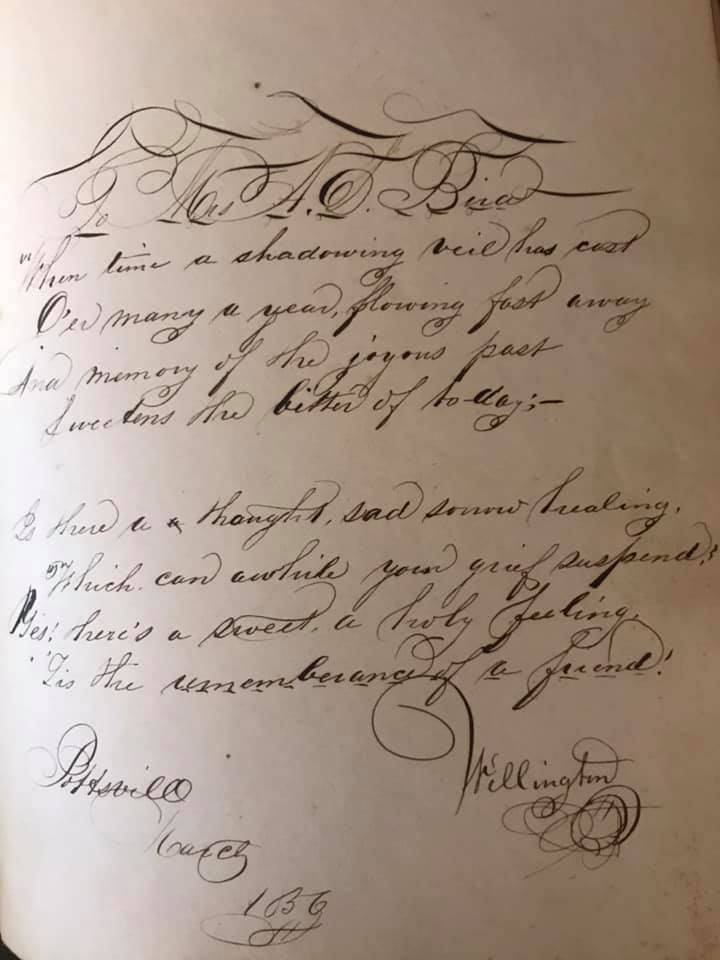 To Mrs A. D. Bird
When time a shadowing veil has cast
O'er many a year, flowing fast away
And memory of the joyous past
Sweetens the bitter of to-day;—
Is there a a thought, sad sorrow healing,
Which can awhile your grief suspend,?
Yes! there's a sweet, a holy feeling,
'Tis the rememberance of a friend!
Wellington
Pottsville
March